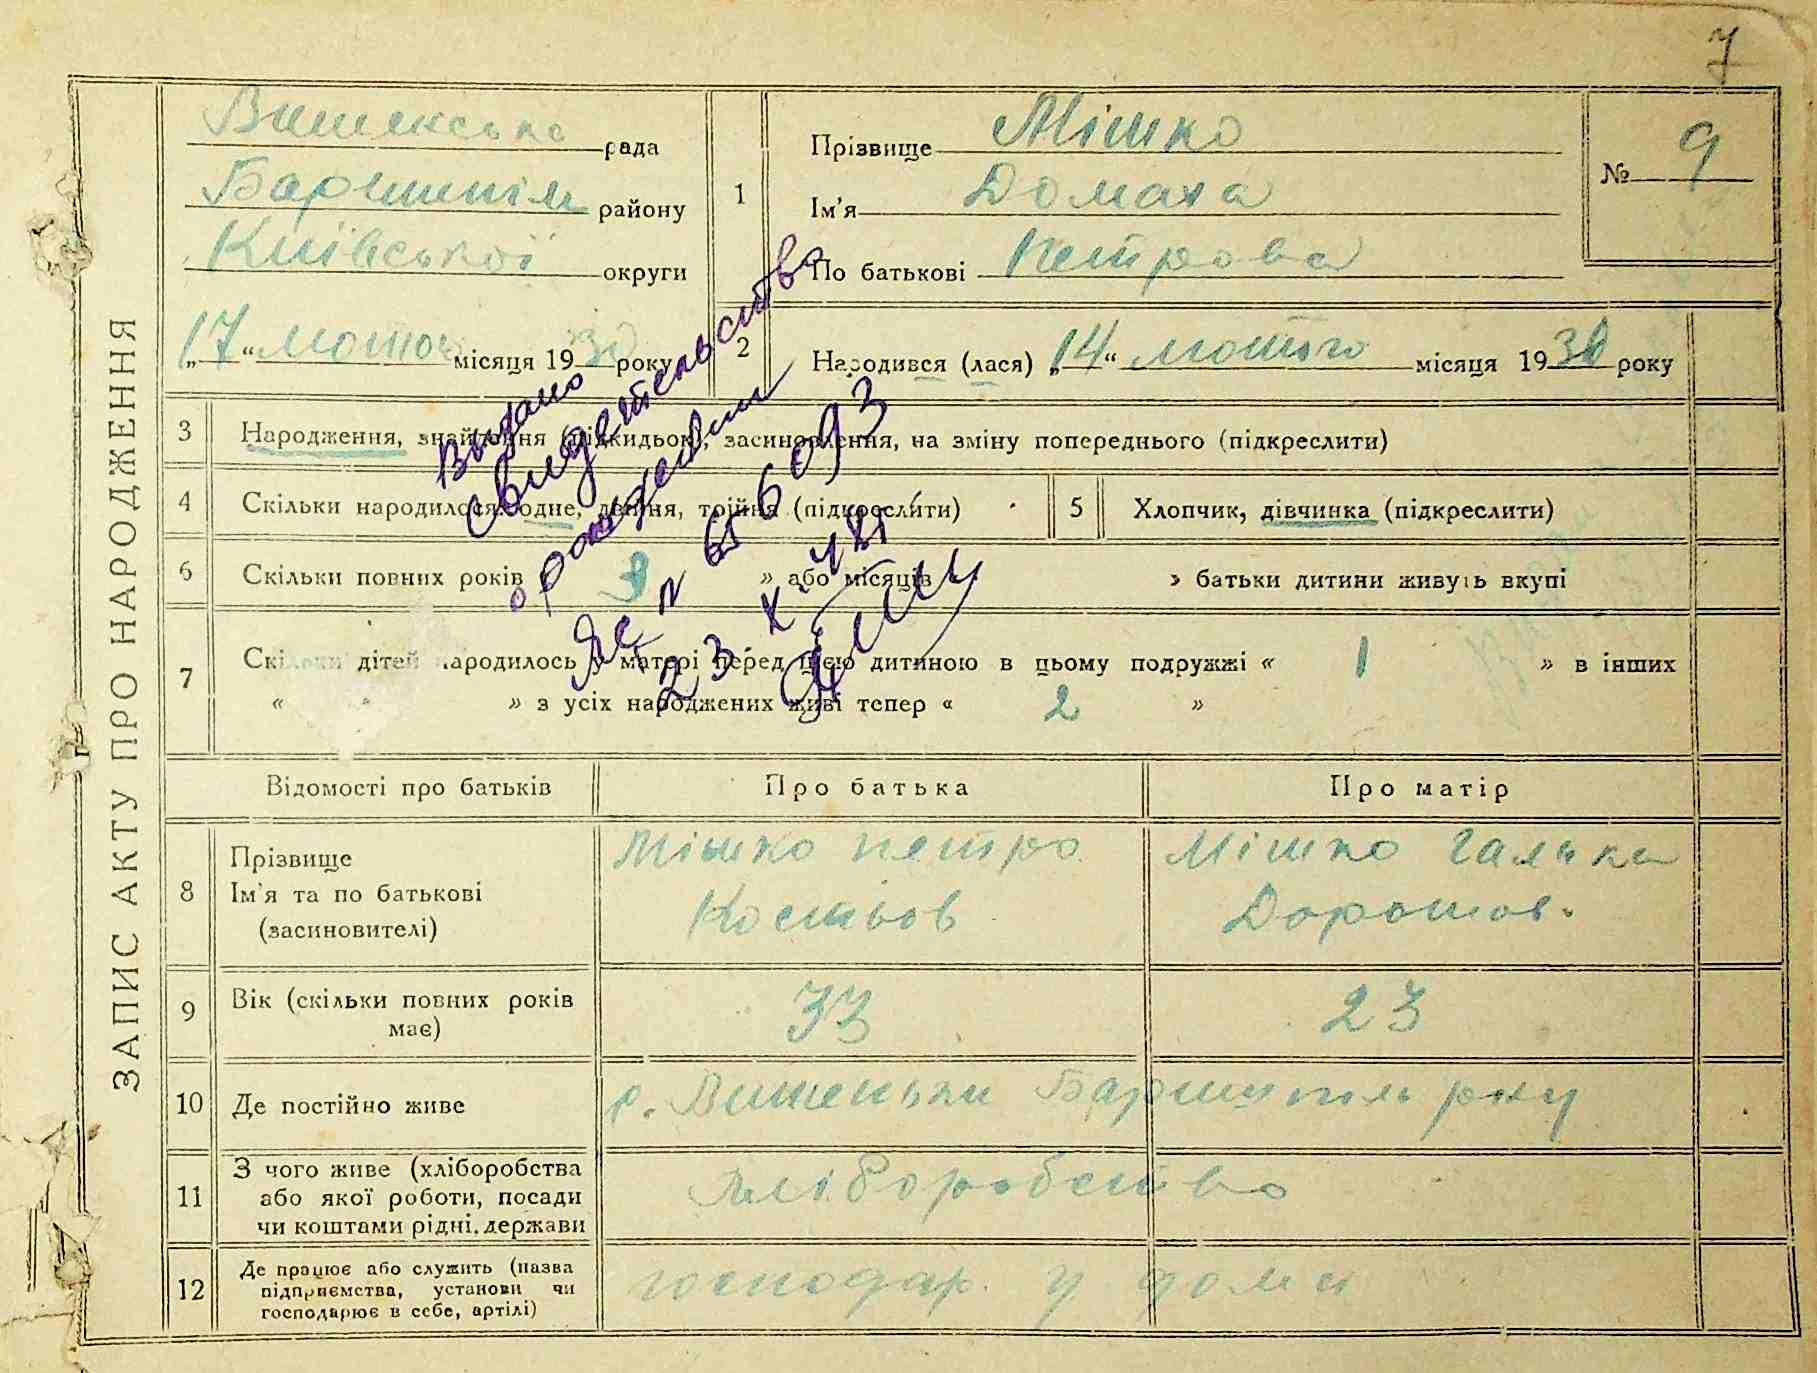 7
ЗАПИС АКТУ ПРО НАРОДЖЕННЯ
Вишенська рада
Баришпіль району
Київської округи
„17“ лютого місяця 1930 року
1
Прізвище Мішко
Ім'я Домаха
По батькові Петрова
№ 9
2
Народився (лася) „14“ лютого місяця 1930 року
3 Народження, знайдення (підкидьок), засиновлення, на зміну попереднього (підкреслити)
4 Скільки народилося: одне, двійня, трійня (підкреслити)
5 Хлопчик, дівчинка (підкреслити)
6 Скільки повних років « » або місяців » батьки дитини живуть вкупі
7 Скільки дітей народилось у матері перед цією дитиною в цьому подружжі « 1 » в інших
« » з усіх народжених живі тепер « 2 »
Выдано
свидетельство
о рождении
ЯС № 656093
23 X
Відомості про батьків
Про батька
Про матір
8 Прізвище
Ім'я та по батькові
(засиновителі)
Мішко Петро
Костьов
Мішко Галька
Дорошов.
9 Вік (скільки повних років
має)
33
23
10 Де постійно живе
с. Вишеньки Баришпіль р-ну
11 З чого живе (хліборобства
або якої роботи, посади
чи коштами рідні, держави
хліборобство
12 Де працює або служить (назва
підприємства, установи чи
господарює в себе, артілі)
господар. у дома